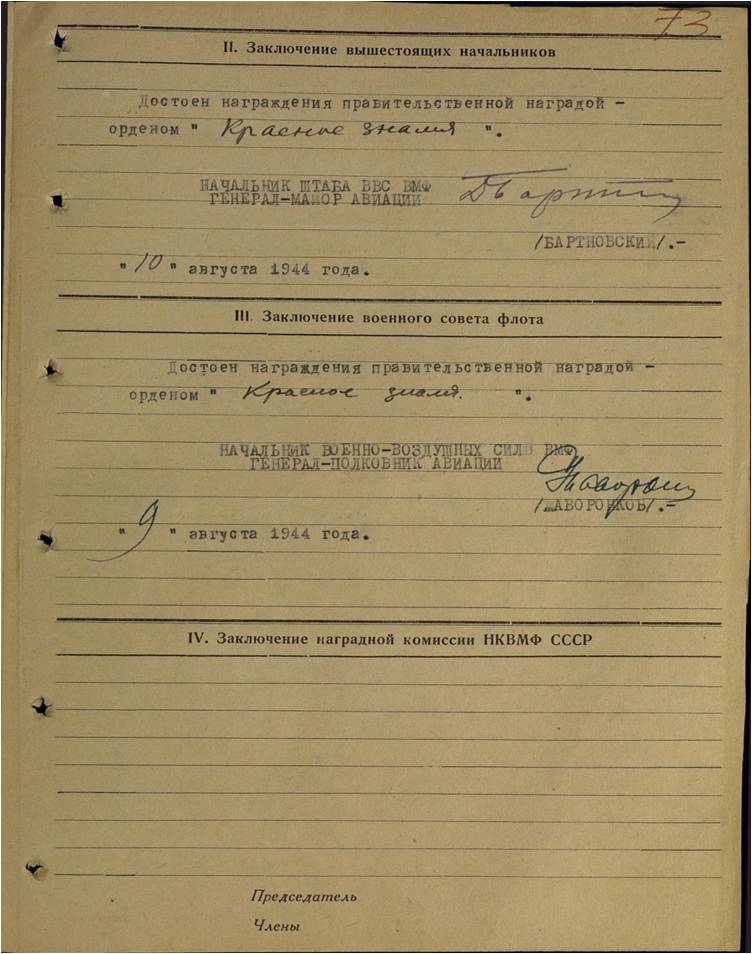 73
II. Заключение вышестоящих начальников
Достоен награждения правительственной наградой –
орденом " Красное знамя ".
НАЧАЛЬНИК ШТАБА ВВС ВМФ
ГЕНЕРАЛ-МАИОР АВИАЦИИ
/БАРТНОВСКИЙ/.-
" 10 " августа 1944 года.
III. Заключение военного совета флота
Достоен награждения правительственной наградой –
орденом " Красное знамя. ".
НАЧАЛЬНИК ВОЕННО-ВОЗДУШНЫХ СИЛ ВМФ
ГЕНЕРАЛ-ПОЛКОВНИК АВИАЦИИ
/ЖАВОРОНКОВ/.-
" 9 " августа 1944 года.
IV. Заключение наградной комиссии НКВМФ СССР
Председатель
Члены